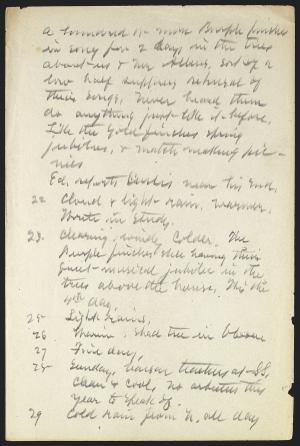 a hundred or more Purple finches
in song for 2 days in the trees
about us & Mr Allens. Sort of a
low half suppress rehearsal of
their songs. Never heard them
do anything just like it before.
Like the Goldfinches spring
jubilees, & match-making pic-
nics
Ed. reports Curtis near his end.
22 Cloud & light rain, warmer.
Wrote in Study.
23. Clearing, windy, Colder. The
Purple finches still having their
sweet musical jubilee in the
trees above the house. This the
4th day.
25 Light rains,
26 Warm. Shad tree in bloom
27 Fine day,
28 Sunday, teachers at S.S.
clear & cool, no arbutus this
year to speak of.
29 Cold rain from N. all day